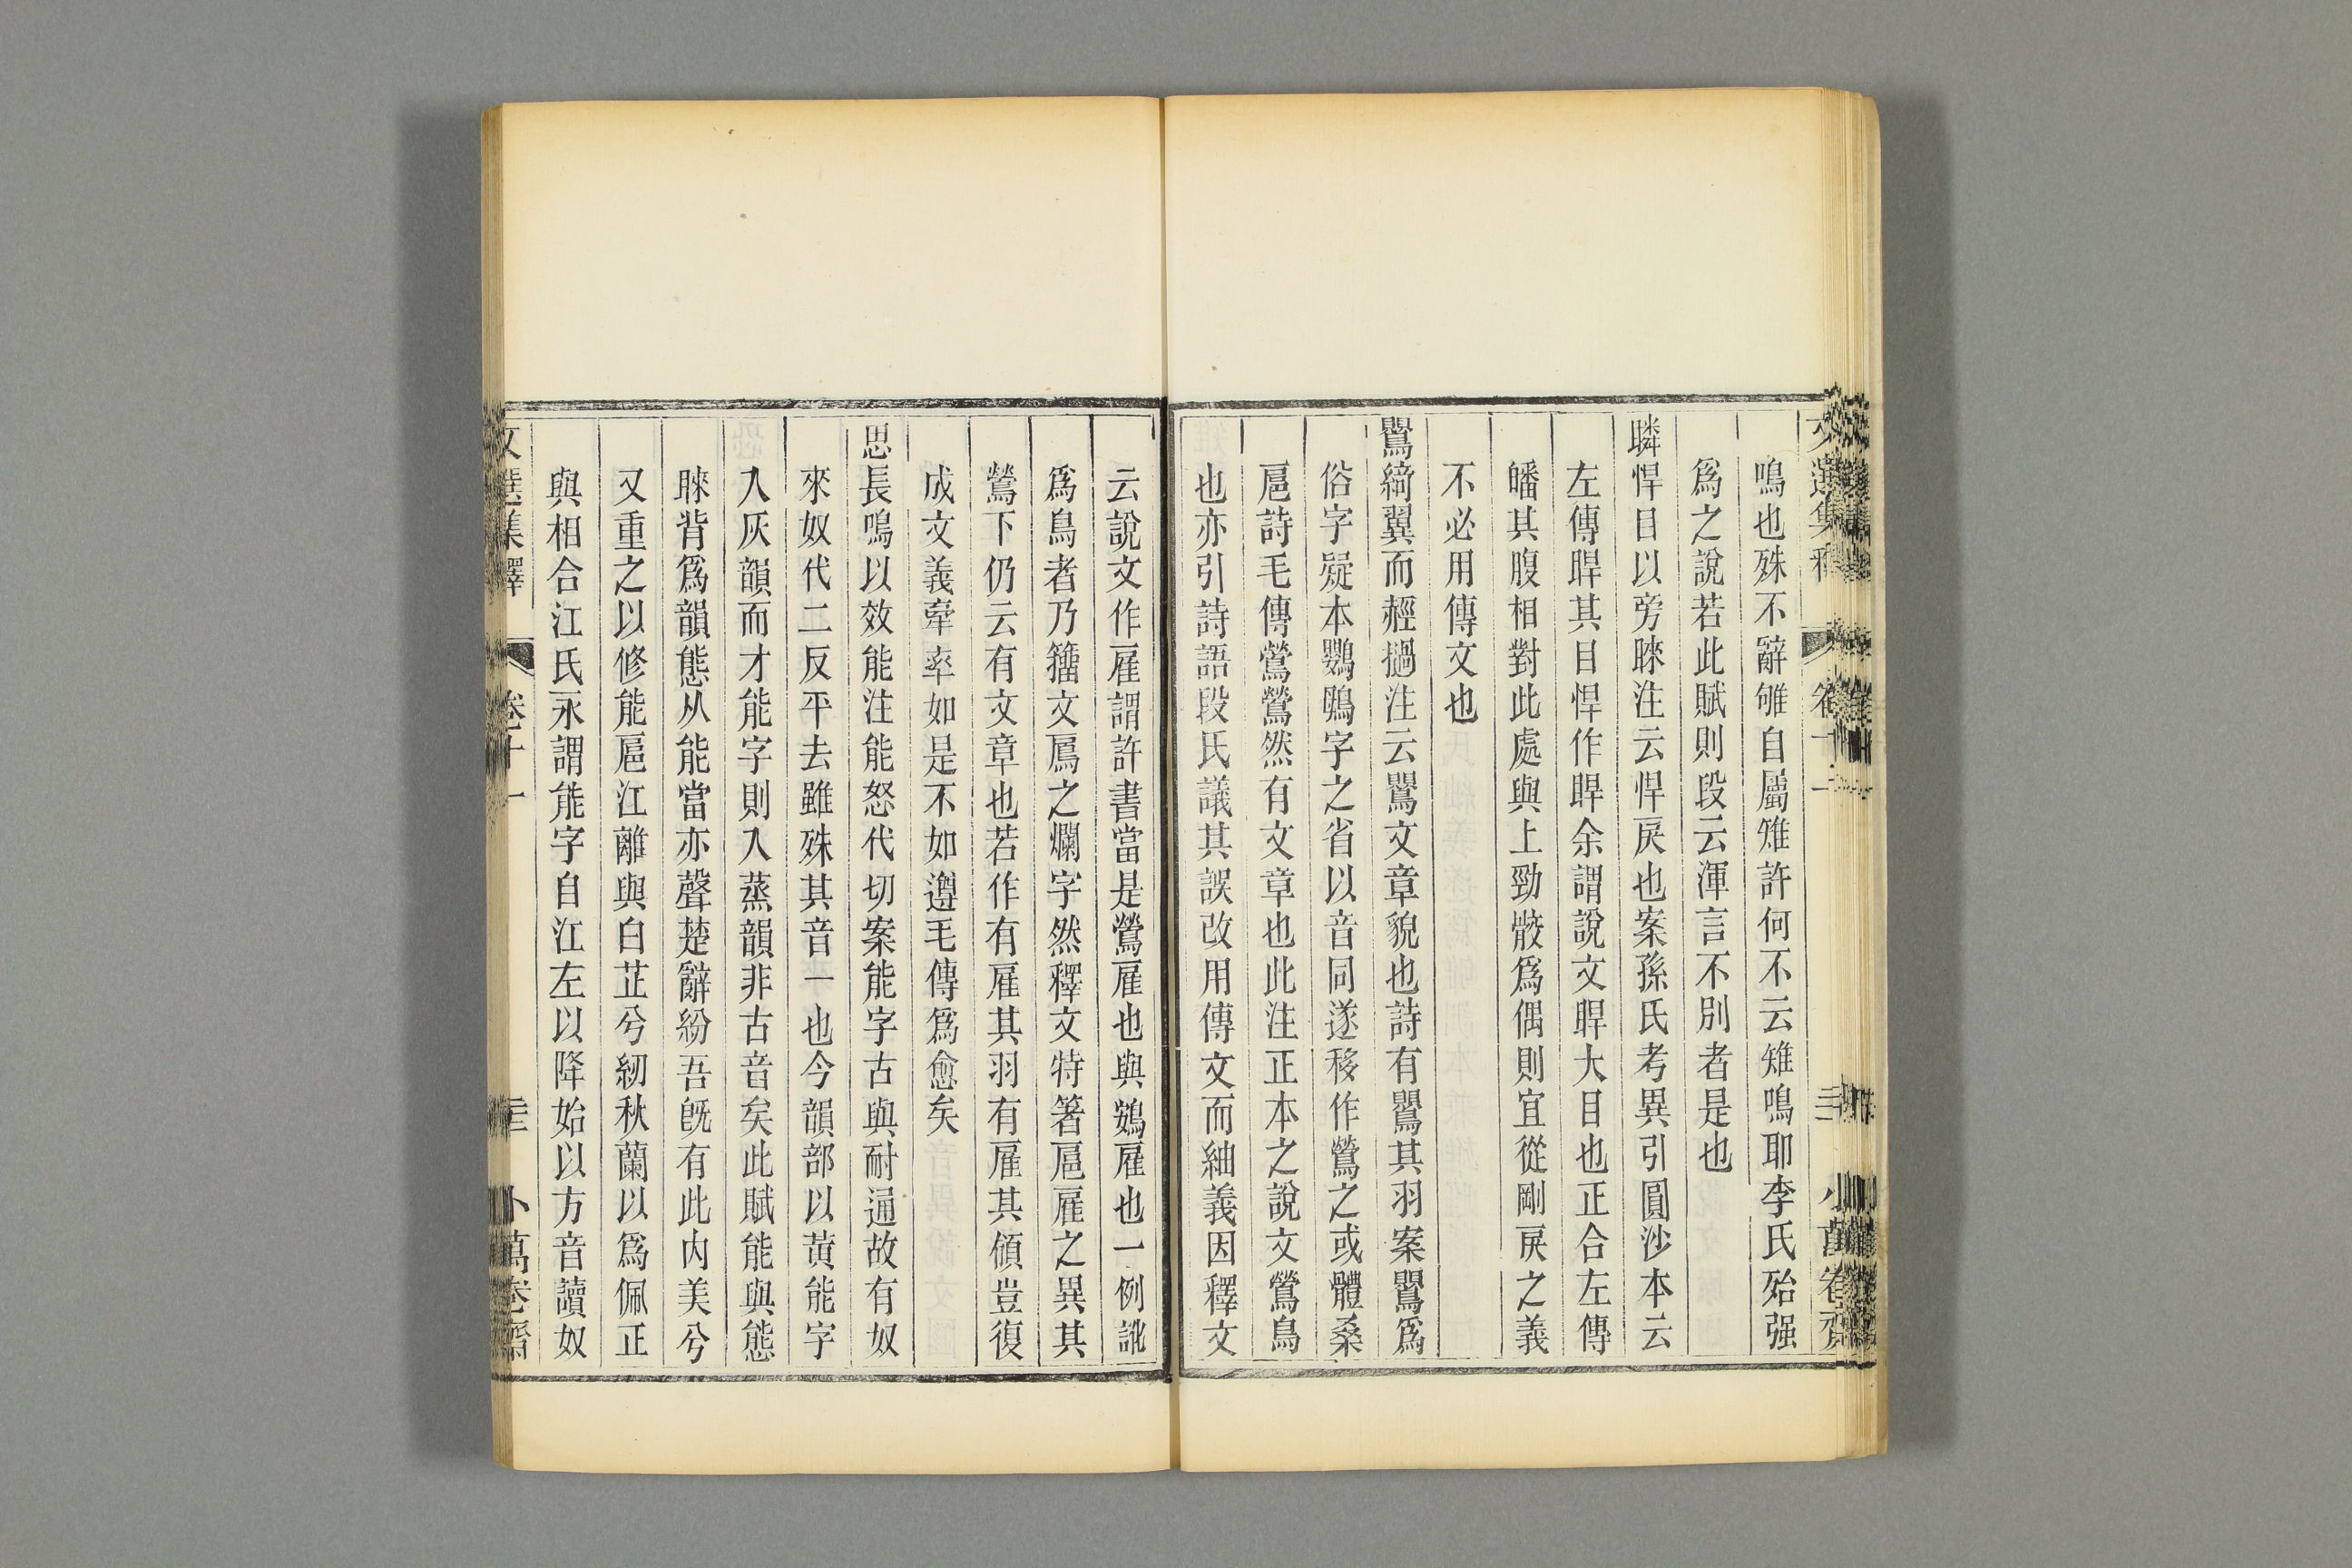 文選集釋 卷十一 小萬卷齋
鳴也殊不辭雊自屬雉許何不云雉鳴耶李氏殆强
爲之說若此賦則段云渾言不別者是也
瞵悍目以旁睞注云悍戾也案孫氏考異引圓沙本云
左傳睅其目悍作睅余謂說文睅大目也正合左傳
皤其腹相對此處與上勁骹爲偶則宜從剛戾之義
不必用傳文也
鷪綺翼而䞓撾注云鷪文章貌也詩有鷪其羽案鷪爲
俗字疑本鸚鴞字之省以音同遂移作鶯之或體桑
扈詩毛傳鶯鶯然有文章也此注正本之說文鶯鳥
也亦引詩語段氏議其誤改用傳文而紬義因釋文
云說文作雇謂許書當是鶯雇也與鳸雇也一例訛
爲鳥者乃籒文鳸之爛字然釋文特箸扈雇之異其
鶯下仍云有文章也若作有雇其羽有雇其領豈復
成文義牽率如是不如遵毛傳爲愈矣
思長鳴以效能注能怒代切案能字古與耐通故有奴
來奴代二反平去雖殊其音一也今韻部以黄能字
入灰韻而才能字則入蒸韻非古音矣此賦能與態
睞背爲韻態从能當亦聲楚辭紛吾旣有此内美兮
又重之以修能扈江離與白芷兮紉秋蘭以爲佩正
與相合江氏永謂能字自江左以降始以方音讀奴
文選集釋 卷十一 小萬卷齋